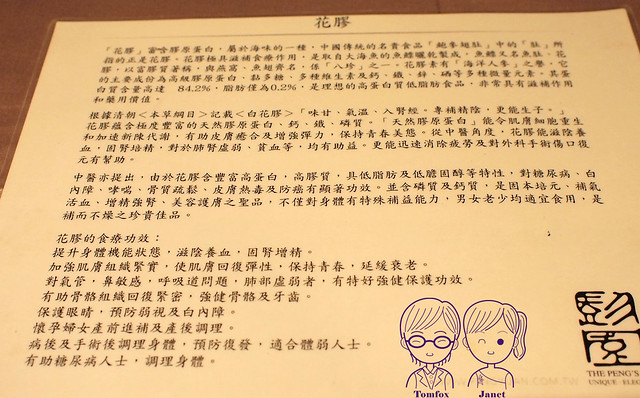 花膠
「花膠」富含膠原蛋白，屬於海味的一種，中國傳統的名貴食品「鮑參翅肚」中的「肚」所
指的正是花膠。花膠極具滋補食療作用，是取自大海魚的魚鰾曬乾製成，魚鰾又名魚肚、花
膠，以富膠質著稱，與燕窩、魚翅齊名，係「八珍」之一。花膠素有「海洋人參」之譽，它
的主要成份為高級膠原蛋白、黏多糖、多種維生素及鈣、鐵、鋅、硒等多種微量元素。其蛋
白質含量高達 84.2%，脂肪僅為0.2%，是理想的高蛋白質低脂肪食品，非常具有滋補作用
和藥用價值。
根據清朝<本草綱目>記載<白花膠>「味甘、氣溫、入腎經。專補精陰，更能生子。」
花膠蘊含極度豐富的天然膠原蛋白、鈣、鐵、磷質。「天然膠原蛋白」能令肌膚細胞重生
和加速新陳代謝，有助皮膚癒合及增強彈力，保持青春美態。從中醫角度，花膠能滋陰養
血，固腎培精，對於肺腎虛弱、貧血等，均有助益。更能迅速消除疲勞及對外科手術傷口復
元有幫助。
中醫亦提出，由於花膠含豐富高蛋白，高膠質，具低脂肪及低膽固醇等特性，對糖尿病、白
內障、哮喘、骨質疏鬆、皮膚熱毒及防癌有顯著功效。並含磷質及鈣質，是固本培元、補氣
活血、增精強腎、美容護膚之聖品，不僅對身體有特殊補益能力，男女老少均適宜食用，是
補而不燥之珍貴佳品。
花膠的食療功效：
提升身體機能狀態，滋陰養血，固腎增精。
加強肌膚組織緊實，使肌膚回復彈性，保持青春，延緩衰老。
對氣管，鼻敏感，呼吸道問題，肺部虛弱者，有特好強健保護功效。
有助骨骼組織回復緊密，強健骨骼及牙齒。
保護眼睛，預防弱視及白內障。
懷孕婦女產前進補及產後調理。
病後及手術後調理身體，預防復發，適合體弱人士。
有助糖尿病人士，調理身體。
彭園
THE PENG'S
UNIQUE
Tomfox
Janet